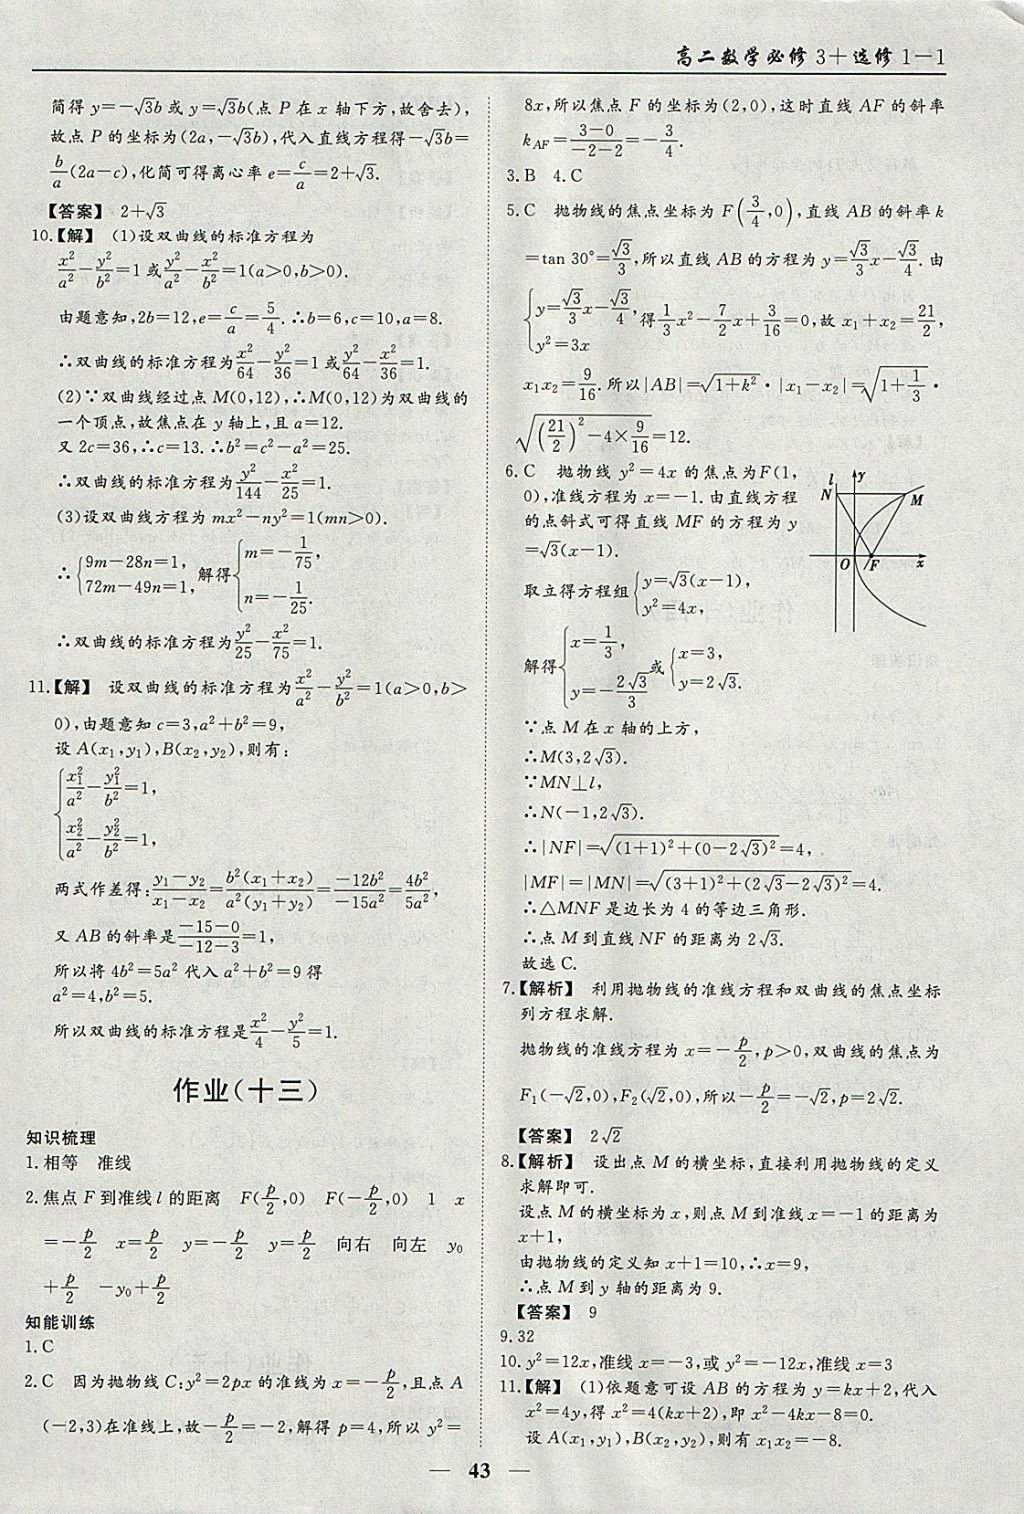 高二数学必修3+选修1-1
简得y=-√3b或y=√3b(点P在x轴下方,故舍去),
故点P的坐标为(2a,-√3b),代入直线方程得-√3b=
b/a(2a-c),化简可得离心率e=c/a=2+√3.
【答案】 2+√3
10.【解】 (1)设双曲线的标准方程为
x²/a²-y²/b²=1或y²/a²-x²/b²=1(a>0,b>0).
由题意知,2b=12,e=c/a=5/4.∴b=6,c=10,a=8.
∴双曲线的标准方程为x²/64-y²/36=1或y²/64-x²/36=1.
(2)∵双曲线经过点M(0,12),∴M(0,12)为双曲线的
一个顶点,故焦点在y轴上,且a=12.
又2c=36,∴c=13.∴b²=c²-a²=25.
∴双曲线的标准方程为y²/144-x²/25=1.
(3)设双曲线方程为mx²-ny²=1(mn>0).
∴{9m-28n=1, 72m-49n=1, 解得{m=-1/75, n=-1/25.
∴双曲线的标准方程为y²/25-x²/75=1.
11.【解】 设双曲线的标准方程为x²/a²-y²/b²=1(a>0,b>
0),由题意知c=3,a²+b²=9,
设A(x₁,y₁),B(x₂,y₂),则有:
{x₁²/a²-y₁²/b²=1,
x₂²/a²-y₂²/b²=1,
两式作差得:(y₁-y₂)/(x₁-x₂)=b²(x₁+x₂)/a²(y₁+y₂)=-12b²/-15a²=4b²/5a²,
又AB的斜率是(-15-0)/(-12-3)=1,
所以将4b²=5a²代入a²+b²=9得
a²=4,b²=5.
所以双曲线的标准方程是x²/4-y²/5=1.
作业(十三)
知识梳理
1.相等 准线
2.焦点F到准线l的距离 F(p/2,0) F(-p/2,0) 1 x
=-p/2 x=p/2 y=-p/2 y=p/2 向右 向左 y₀
+p/2 -y₀+p/2
知能训练
1.C
2.C 因为抛物线C:y²=2px的准线为x=-p/2,且点A
(-2,3)在准线上,故-p/2=-2,解得p=4,所以y²=
8x,所以焦点F的坐标为(2,0),这时直线AF的斜率
k_AF=(3-0)/(-2-2)=-3/4.
3.B 4.C
5.C 抛物线的焦点坐标为F(3/4,0),直线AB的斜率k
=tan 30°=√3/3,所以直线AB的方程为y=√3/3x-√3/4.由
{y=√3/3x-√3/4, y²=3x 得1/3x²-7/2x+3/16=0,故x₁+x₂=21/2,
x₁x₂=9/16.所以|AB|=√(1+k²)·|x₁-x₂|=√(1+1/3)·
√((21/2)²-4×9/16)=12.
6.C 抛物线y²=4x的焦点为F(1,
0),准线方程为x=-1.由直线方程
的点斜式可得直线MF的方程为y
=√3(x-1).
取立得方程组{y=√3(x-1), y²=4x,
解得{x=1/3, y=-2√3/3 或{x=3, y=2√3.
l y N M O F x
∵点M在x轴的上方,
∴M(3,2√3).
∵MN⊥l,
∴N(-1,2√3).
∴|NF|=√((1+1)²+(0-2√3)²)=4,
|MF|=|MN|=√((3+1)²+(2√3-2√3)²)=4.
∴△MNF是边长为4的等边三角形.
∴点M到直线NF的距离为2√3.
故选C.
7.【解析】 利用抛物线的准线方程和双曲线的焦点坐标
列方程求解.
抛物线的准线方程为x=-p/2,p>0,双曲线的焦点为
F₁(-√2,0),F₂(√2,0),所以-p/2=-√2,p=2√2.
【答案】 2√2
8.【解析】 设出点M的横坐标,直接利用抛物线的定义
求解即可.
设点M的横坐标为x,则点M到准线x=-1的距离为
x+1,
由抛物线的定义知x+1=10,∴x=9,
∴点M到y轴的距离为9.
【答案】 9
9.32
10.y²=12x,准线x=-3,或y²=-12x,准线x=3
11.【解】 (1)依题意可设AB的方程为y=kx+2,代入
x²=4y,得x²=4(kx+2),即x²-4kx-8=0.
设A(x₁,y₁),B(x₂,y₂),则有x₁x₂=-8.
— 43 —